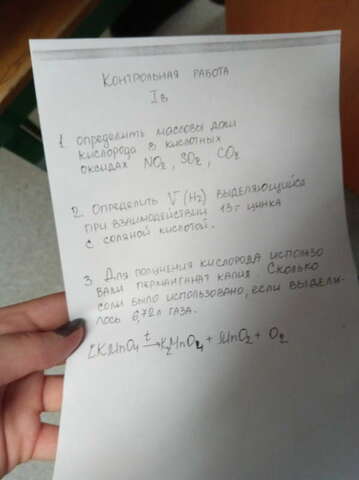 Контрольная работа
I в
1 Определить массовы доли
кислорода в кислотных
оксидах NO₂, SO₂, CO₂
2. Определить V (H₂) выделяющийся
при взаимодействии 13 г цинка
с соляной кислотой.
3. Для получения кислорода использо
вали перманганат калия. Сколько
соли было использовано, если выдели-
лось 6,72л газа.
2KMnO₄ t→ K₂MnO₄ + MnO₂ + O₂